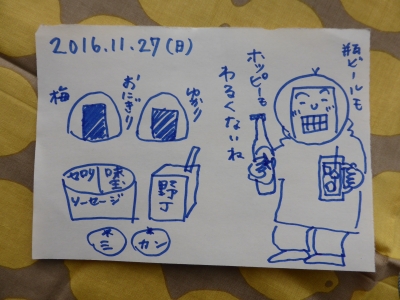 2016.11.27(日)
梅
おにぎり
ゆかり
瓶ビールも
ホッピーも
わるくないね
セロリ
味玉
ソーセージ
野J
ミ
カン